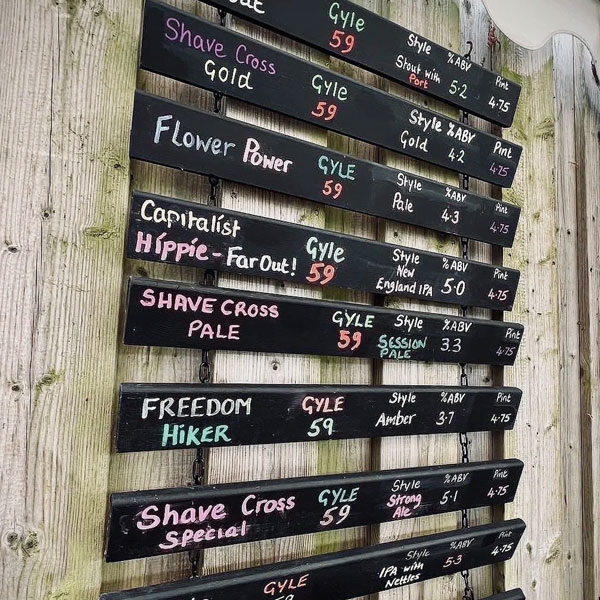 Gyle Style %ABV Pint
59 Stout with Port 5.2 4.75
Shave Cross Gyle Style %ABV Pint
Gold 59 Gold 4.2 4.75
Flower Power GYLE Style %ABV Pint
59 Pale 4.3 4.75
Capitalist Gyle Style %ABV Pint
Hippie - Far Out! 59 New England IPA 5.0 4.75
SHAVE CROSS GYLE Style %ABV Pint
PALE 59 SESSION PALE 3.3 4.75
FREEDOM GYLE Style %ABV Pint
HiKER 59 Amber 3.7 4.75
Shave Cross GYLE Style %ABV Pint
Special 59 Strong Ale 5.1 4.75
GYLE Style %ABV Pint
59 IPA with Nettles 5.3 4.75